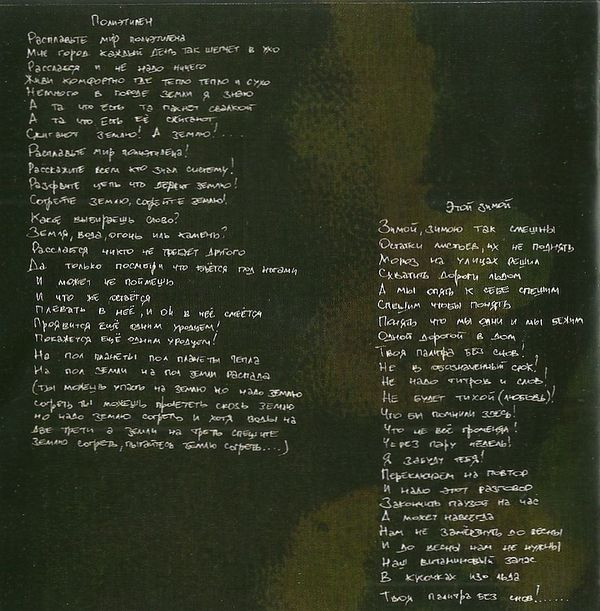 Полиэтилен
Расплавьте мир полиэтилена
Мне город каждый день так шепчет в ухо
Расслабся и не надо ничего
Живи комфортно где тепло тепло и сухо
Немного в городе земли я знаю
А та что есть та пахнет свалкой
А та что есть её сжигают
Сжигают землю! А землю!....
Расплавьте мир полиэтилена!
Расскажите всем кто знал систему!
Разорвите цепь что держит землю!
Согрейте землю, согрейте землю!
Какое выбираешь слово?
Земля, вода, огонь иль камень?
Расслабся никто не требует другого
Да только посмотри что вьётся под ногами
И может не поймёшь
И что же остаётся
Плевать в неё, и он в неё смеётся
Проявится ещё одним уродцем!
Покажется ещё одним уродцем!
На пол планеты пол планеты тепла
На пол земли на пол земли распада
(ты можешь упасть на землю но надо землю
согреть ты можешь пролететь сквозь землю
но надо землю согреть и хотя воды на
две трети а земли на треть спешите
землю согреть, пытайтесь землю согреть....)
Этой зимой
Зимой, зимою так смешны
Остатки листьев, их не поднять
Мороз на улицах решил
Схватить дороги льдом
А мы опять к себе спешим
Спешим чтобы понять
Понять что мы одни и мы бежим
Одной дорогой в дом!
Твоя палитра без снов!
Не в обозначенный срок!
Не надо титров и слов!
Не будет тихой (любовь)!
Что бы помнили здесь!
Что не всё
Через пару недель!
Я забуду тебя!
Переключаем на повтор
И надо этот разговор
Закончить паузой на час
А может навсегда
Нам не замёрзнуть до весны
И до весны нам не нужны
Наш витаминовый запас
В кусочках изо льда
Твоя палитра без снов!......